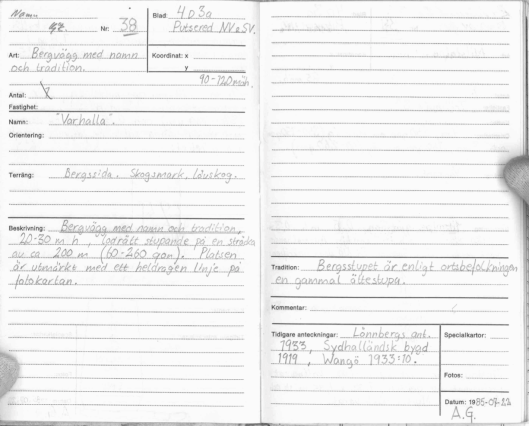 Namn
Nr: 38
Blad: 4 D 3a
Putsered NV o SV.
Art: Bergvägg med namn
och tradition.
Koordinat: x
y
90-120 möh.
Antal:
Fastighet:
Namn: "Varhalla".
Orientering:
Terräng: Bergssida. Skogsmark, lövskog.
Beskrivning: Bergvägg med namn och tradition,
20-30 m h, lodrätt stupande på en sträcka
av ca 200 m (60-260 gon). Platsen
är utmärkt med ett heldragen linje på
fotokartan.
Tradition: Bergsstupet är enligt ortsbefolkningen
en gammal ättestupa.
Kommentar:
Tidigare anteckningar: Lönnbergs ant.
1933, Sydhalländsk bygd
1919, Wangö 1933:10.
Specialkartor:
Fotos:
Datum: 1985-07-22
A.G.